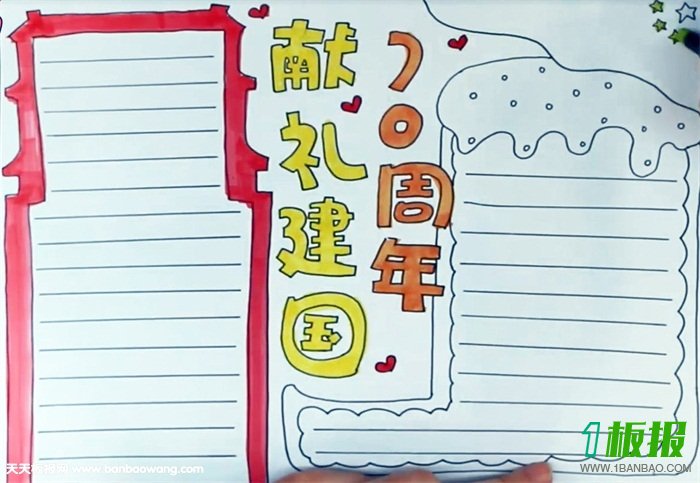 献礼建国
70周年
1板报
WWW.1BANBAO.COM
www.banbaowang.com